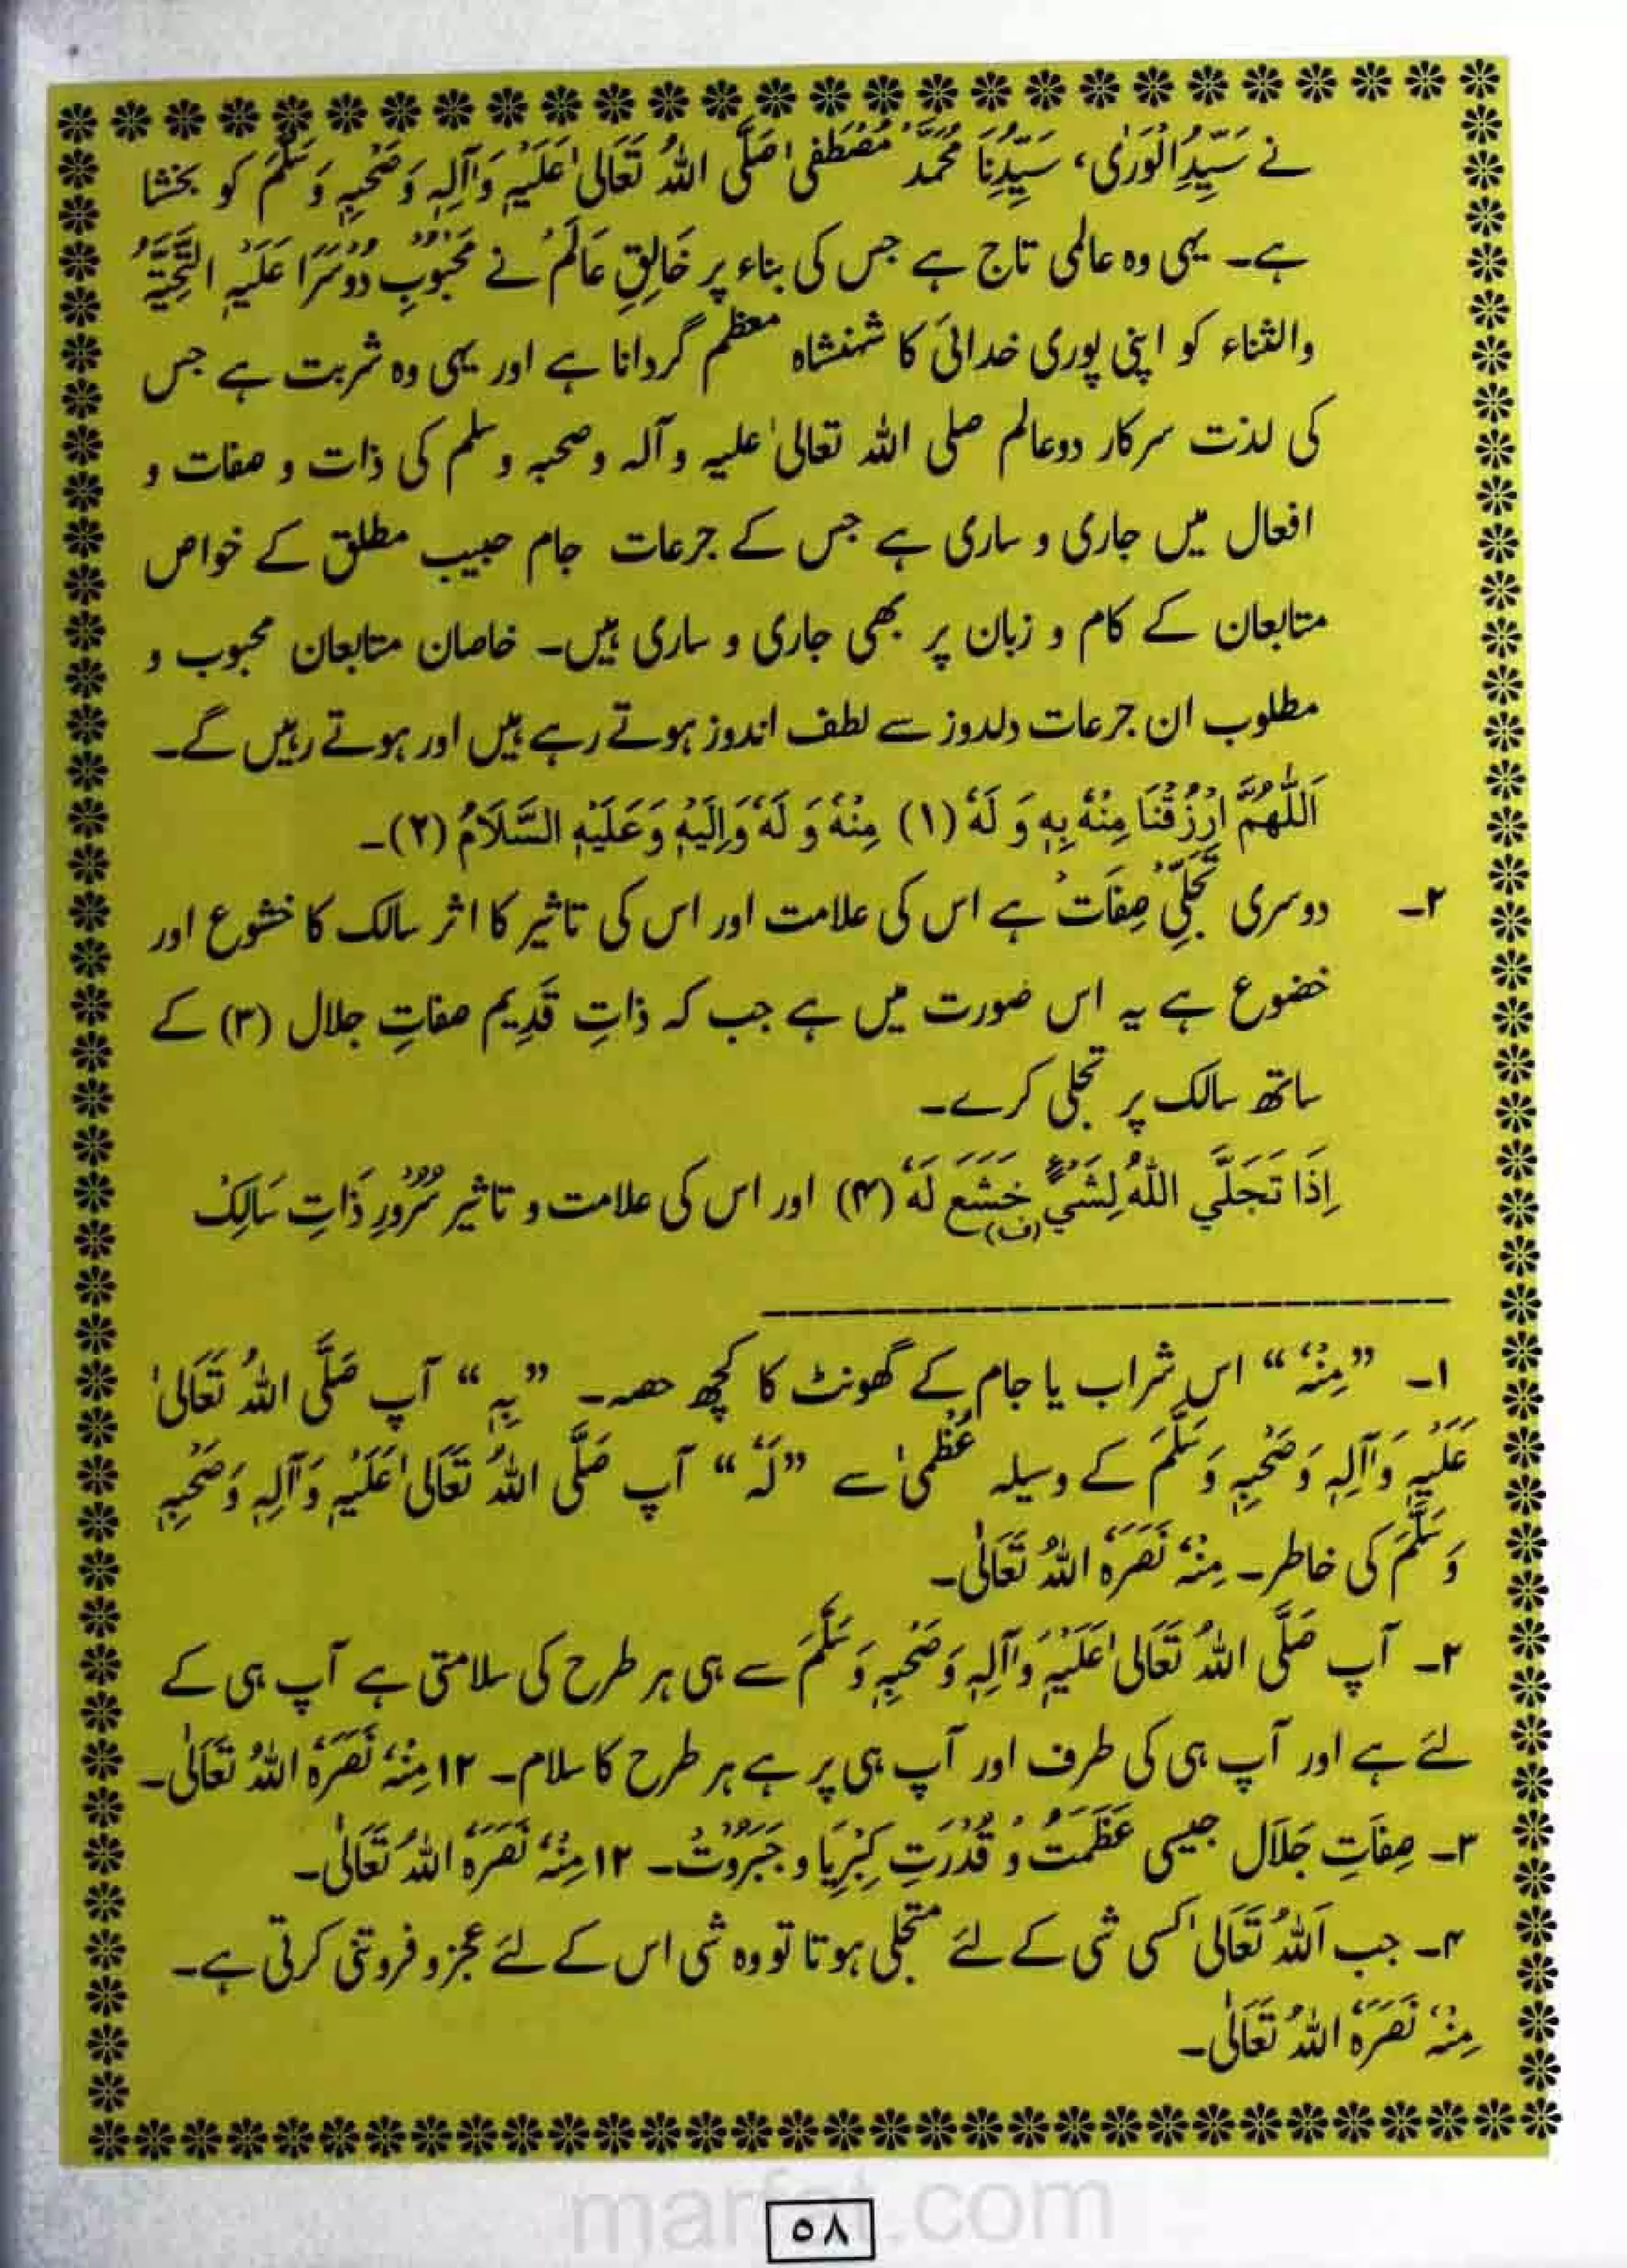 نے سَیِّدُالْوَرٰی، سَیِّدِنَا مُحَمَّدْ مُصْطَفٰی صَلَّی اللّٰہُ تَعَالٰی عَلَیْہِ وَآلِہٖ وَصَحْبِہٖ وَسَلَّمَ کو بخشا
ہے۔ یہی وہ عالمی تاج ہے جس کی بناء پر خَالِقِ عَالَمْ نے مَحْبُوْبِ دُوْسَرَا عَلَیْہِ التَّحِیَّۃُ
والثناء کو اپنی پوری خدائی کا شہنشاہ معظم گردانا ہے اور یہی وہ شربت ہے جس
کی لذت سرکار دوعالم صلی اللہ تعالیٰ علیہ وآلہ وصحبہ وسلم کی ذات و صفات و
افعال میں جاری و ساری ہے جس کے جرعات جام حبیب مطلق کے خواص
متابعان کے کام و زبان پر بھی جاری و ساری ہیں۔ خاصان متابعان محبوب و
مطلوب ان جرعات دلدوز سے لطف اندوز ہوتے رہے ہیں اور ہوتے رہیں گے۔
اَللّٰھُمَّ ارْزُقْنَا مِنْہُ بِہٖ وَ لَہٗ (۱) مِنْہُ وَ لَہٗ وَاِلَیْہِ وَعَلَیْہِ السَّلَامُ (۲)۔
۲۔ دوسری تَجَلِّیِ صِفَاتْ ہے اس کی علامت اور اس کی تاثیر کا اثر سالک کا خشوع اور
خضوع ہے یہ اس صورت میں ہے جب کہ ذاتِ قَدِیم صفاتِ جلال (۳) کے
ساتھ سالک پر تجلی کرے۔
اِذَا تَجَلَّي اللّٰهُ لِشَيْءٍ خَشَعَ لَهٗ (۴) اور اس کی علامت و تاثیر سُرُوْرِ ذَاتِ سَالِکْ
(ف)
۱۔ ”مِنْہُ“ اس شراب یا جام کے گھونٹ کا کچھ حصہ۔ ”بِہٖ“ آپ صَلَّی اللّٰہُ تَعَالٰی
عَلَیْہِ وَآلِہٖ وَصَحْبِہٖ وَسَلَّمَ کے وسیلہ عُظْمٰی سے ”لَہٗ“ آپ صَلَّی اللّٰہُ تَعَالٰی عَلَیْہِ وَآلِہٖ وَصَحْبِہٖ
وَسَلَّمَ کی خاطر۔ مِنْہُ نَصَرَہُ اللّٰہُ تَعَالٰی۔
۲۔ آپ صَلَّی اللّٰہُ تَعَالٰی عَلَیْہِ وَآلِہٖ وَصَحْبِہٖ وَسَلَّمَ سے ہی ہر طرح کی سلامتی ہے آپ ہی کے
لئے ہے اور آپ ہی کی طرف اور آپ ہی پر ہے ہر طرح کا سلام۔ ۱۲ مِنْہُ نَصَرَہُ اللّٰہُ تَعَالٰی۔
۳۔ صِفَاتِ جَلَالْ جیسی عَظَمَتْ و قُدْرَتِ کِبْرِیَا و جَبَرُوْتْ۔ ۱۲ مِنْہُ نَصَرَہُ اللّٰہُ تَعَالٰی۔
۴۔ جب اَللّٰہُ تَعَالٰی کسی شی کے لئے متجلی ہوتا تو وہ شی اس کے لئے عجز و فروتنی کرتی ہے۔
مِنْہُ نَصَرَہُ اللّٰہُ تَعَالٰی۔
۵۸